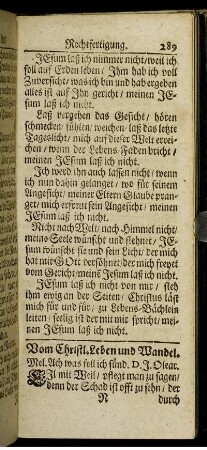 Rechtfertigung. 289
JEsum laß ich nimmer nicht/weil ich
soll auf Erden leben/ Ihm hab ich voll
Zuversicht/ was ich bin und hab ergeben
alles ist auf Ihn gericht/ meinen JE-
sum laß ich nicht.
Laß vergehen das Gesicht/ hören
schmecken fühlen/ weichen/ laß das letzte
Tageslicht/ mich auf dieser Welt errei-
chen/ wenn der Lebens-Faden bricht/
meinen JEsum laß ich nicht.
Ich werd ihn auch lassen nicht/ wenn
ich nun dahin gelanget/ wo für seinem
Angesicht/ meiner Eltern Glaube pran-
get/ mich erfreut sein Angesicht/ meinen
JEsum laß ich nicht.
Nicht nach Welt/ nach Himmel nicht/
meine Seele wünscht und stehnet/ JE-
sum wünscht sie und sein Licht/ der mich
hat mit GOtt versöhnet/ der mich freyet
vom Gericht/meine Jesum laß ich nicht.
JEsum laß ich nicht von mir/ steh
ihm ewig an der Seiten/ Christus läst
mich für und für/ zu Lebens-Bächlein
leiten/ seelig ist der mit mir spricht/ mei-
nen JEsum laß ich nicht.
Vom Christl. Leben und Wandel.
Mel. Ach was soll ich sünd. D. J. Olear.
EIl mit Weil/ pflegt man zu sagen/
denn der Schad ist offt zu sehn/ der
N durch